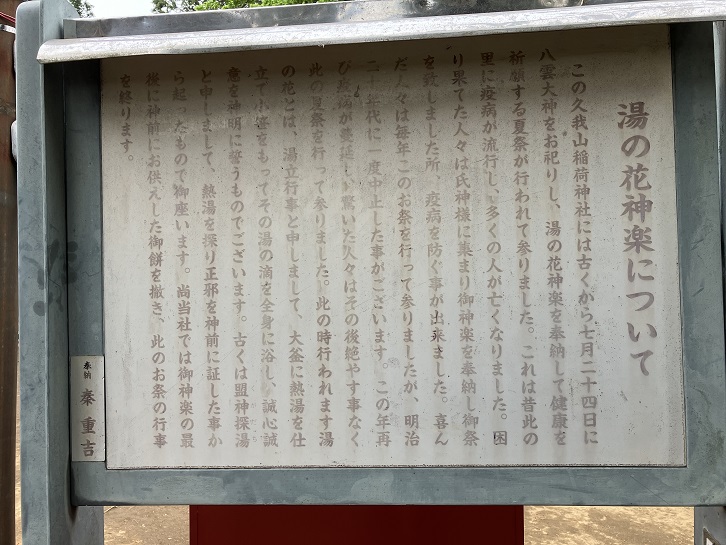 湯の花神楽について
この久我山稲荷神社には古くから七月二十四日に
八雲大神をお祀りし、湯の花神楽を奉納して健康を
祈願する夏祭が行われて参りました。これは昔此の
里に疫病が流行し、多くの人が亡くなりました。困
り果てた人々は氏神様に集まり御神楽を奉納し御祭
を致しました所、疫病を防ぐ事が出来ました。喜ん
だ人々は毎年このお祭を行って参りましたが、明治
二十年代に一度中止した事がございます。この年再
び疫病が蔓延し、驚いた人々はその後絶やす事なく
此の夏祭を行って参りました。此の時行われます湯
の花とは、湯立行事と申しまして、大釜に熱湯を仕
立て小笹をもってその湯の滴を全身に浴し、誠心誠
意を神明に誓うものでございます。古くは盟神探湯
と申しまして、熱湯を探り正邪を神前に証した事か
ら起ったもので御座います。尚当社では御神楽の最
後に神前にお供えした御餅を撤き、此のお祭の行事
を終ります。
奉納 秦重吉